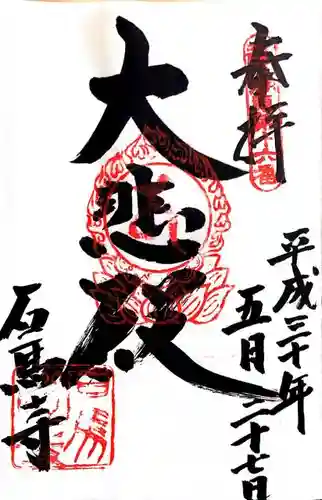 奉拝
平成三十年
五月二十七日
大悲殿
石馬寺